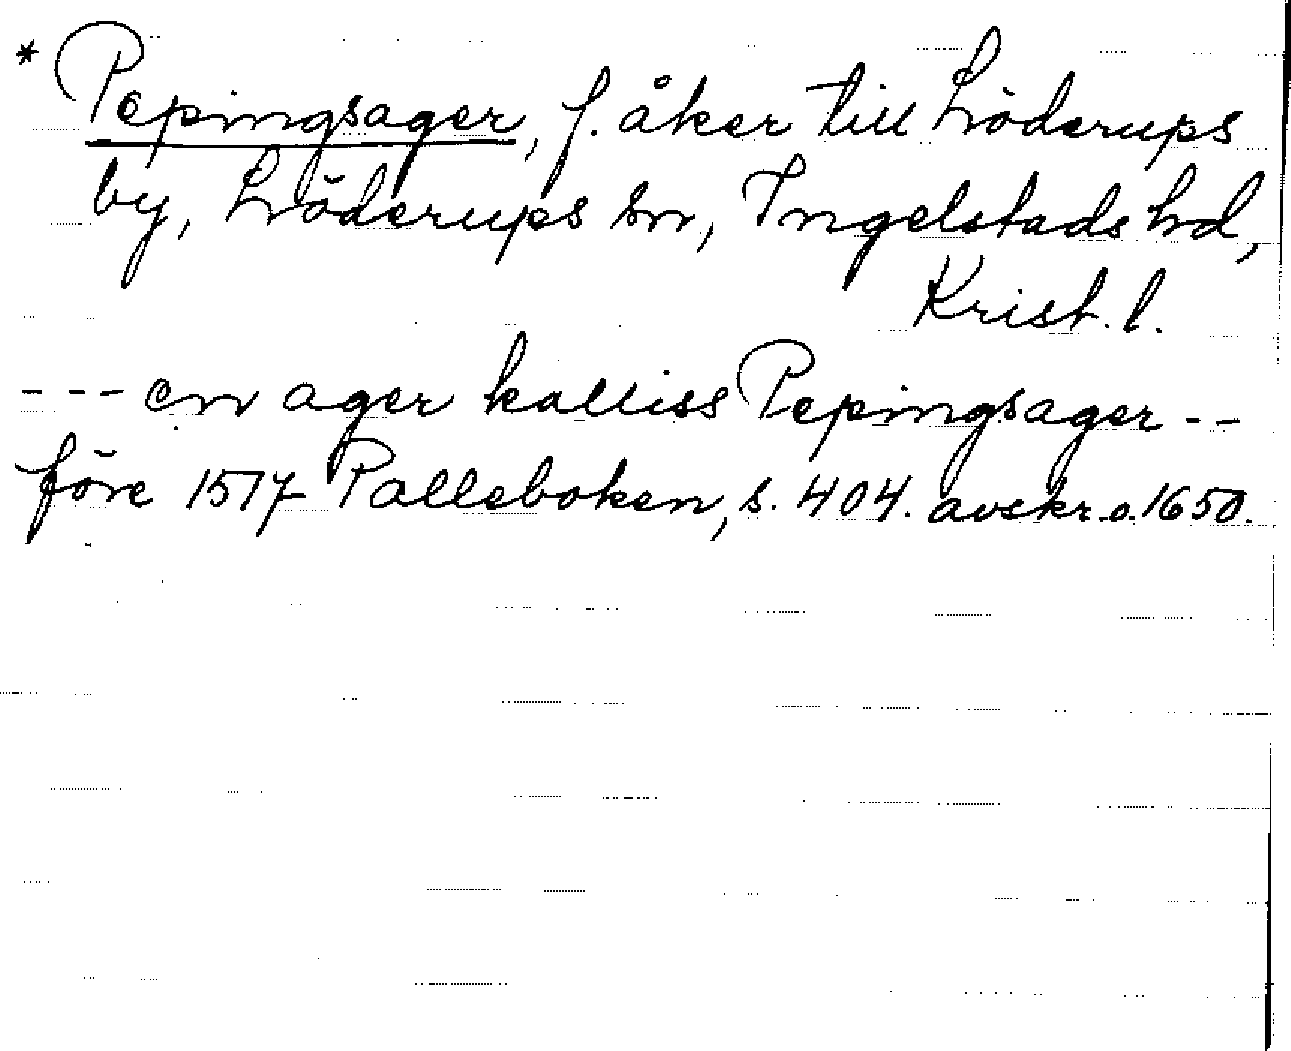 * Pepingsager, f. åker till Löderups
by, Löderups sn, Ingelstads hd,
Krist. l.
--- en ager kalliss Pepingsager --
före 1517 Palleboken, s. 404. avskr. o. 1650.